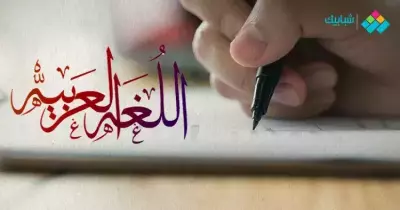 شبابيك
اللغة العربية